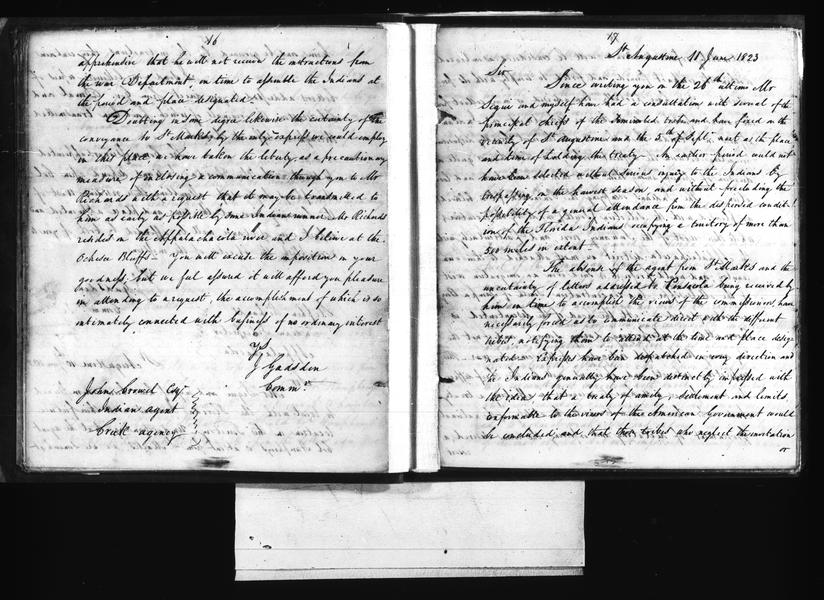 16
apprehensive that he will not receive the instructions from
the war Department, in time to assemble the Indians at
the period and place designated.
Doubting in some degree likewise the certainty of the
conveyance to St Marks by the only express we could employ
in this place we have taken the liberty, as a precautionary
measure of inclosing a communication through you to Mr
Richards with a request that it may be transmitted to
him as early as possible by some Indian runner. Mr Richards
resides on the Appalachacola river and I believe at the
Ochesee Bluffs – You will excuse the imposition on your
goodness, but we feel assured it will afford you pleasure
in attending to a request, the accomplishment of which is so
intimately connected with business of no ordinary interest
Ys
J Gadsden
Commr
John Crowell Esqr
Indian agent
Creek agency
17
St Augustine 11 June 1823
Sir
Since writing you on the 26th ultimo Mr
Segui and myself have had a consultation with several of the
principal chiefs of the Seminole tribe and have fixed on the
vicinity of St Augustine and the 5th of Sept. next as the place
and time of holding the treaty – An earlier period could not
have been selected without serious injury to the Indians by
trespassing on the harvest season, and without precluding the
possibility of a general attendance from the dispersed condit-
ion of the Florida Indians occupying a territory of more than
500 miles in extent
The absence of the agent from St Marks and the
uncertainty of letters addressed to Pensacola being received by
him in time to accomplish the views of the commissioners, have
necessarily forced us to communicate direct with the different
tribes, notifying them to attend at the time and place desig-
nated. Expresses have been despatched in every direction and
the Indians generally have been distinctly impressed with
the idea that a treaty of amity, settlement and limits,
conformable to the views of the American Government would
be concluded, and that those tribes who neglect the invitation
or